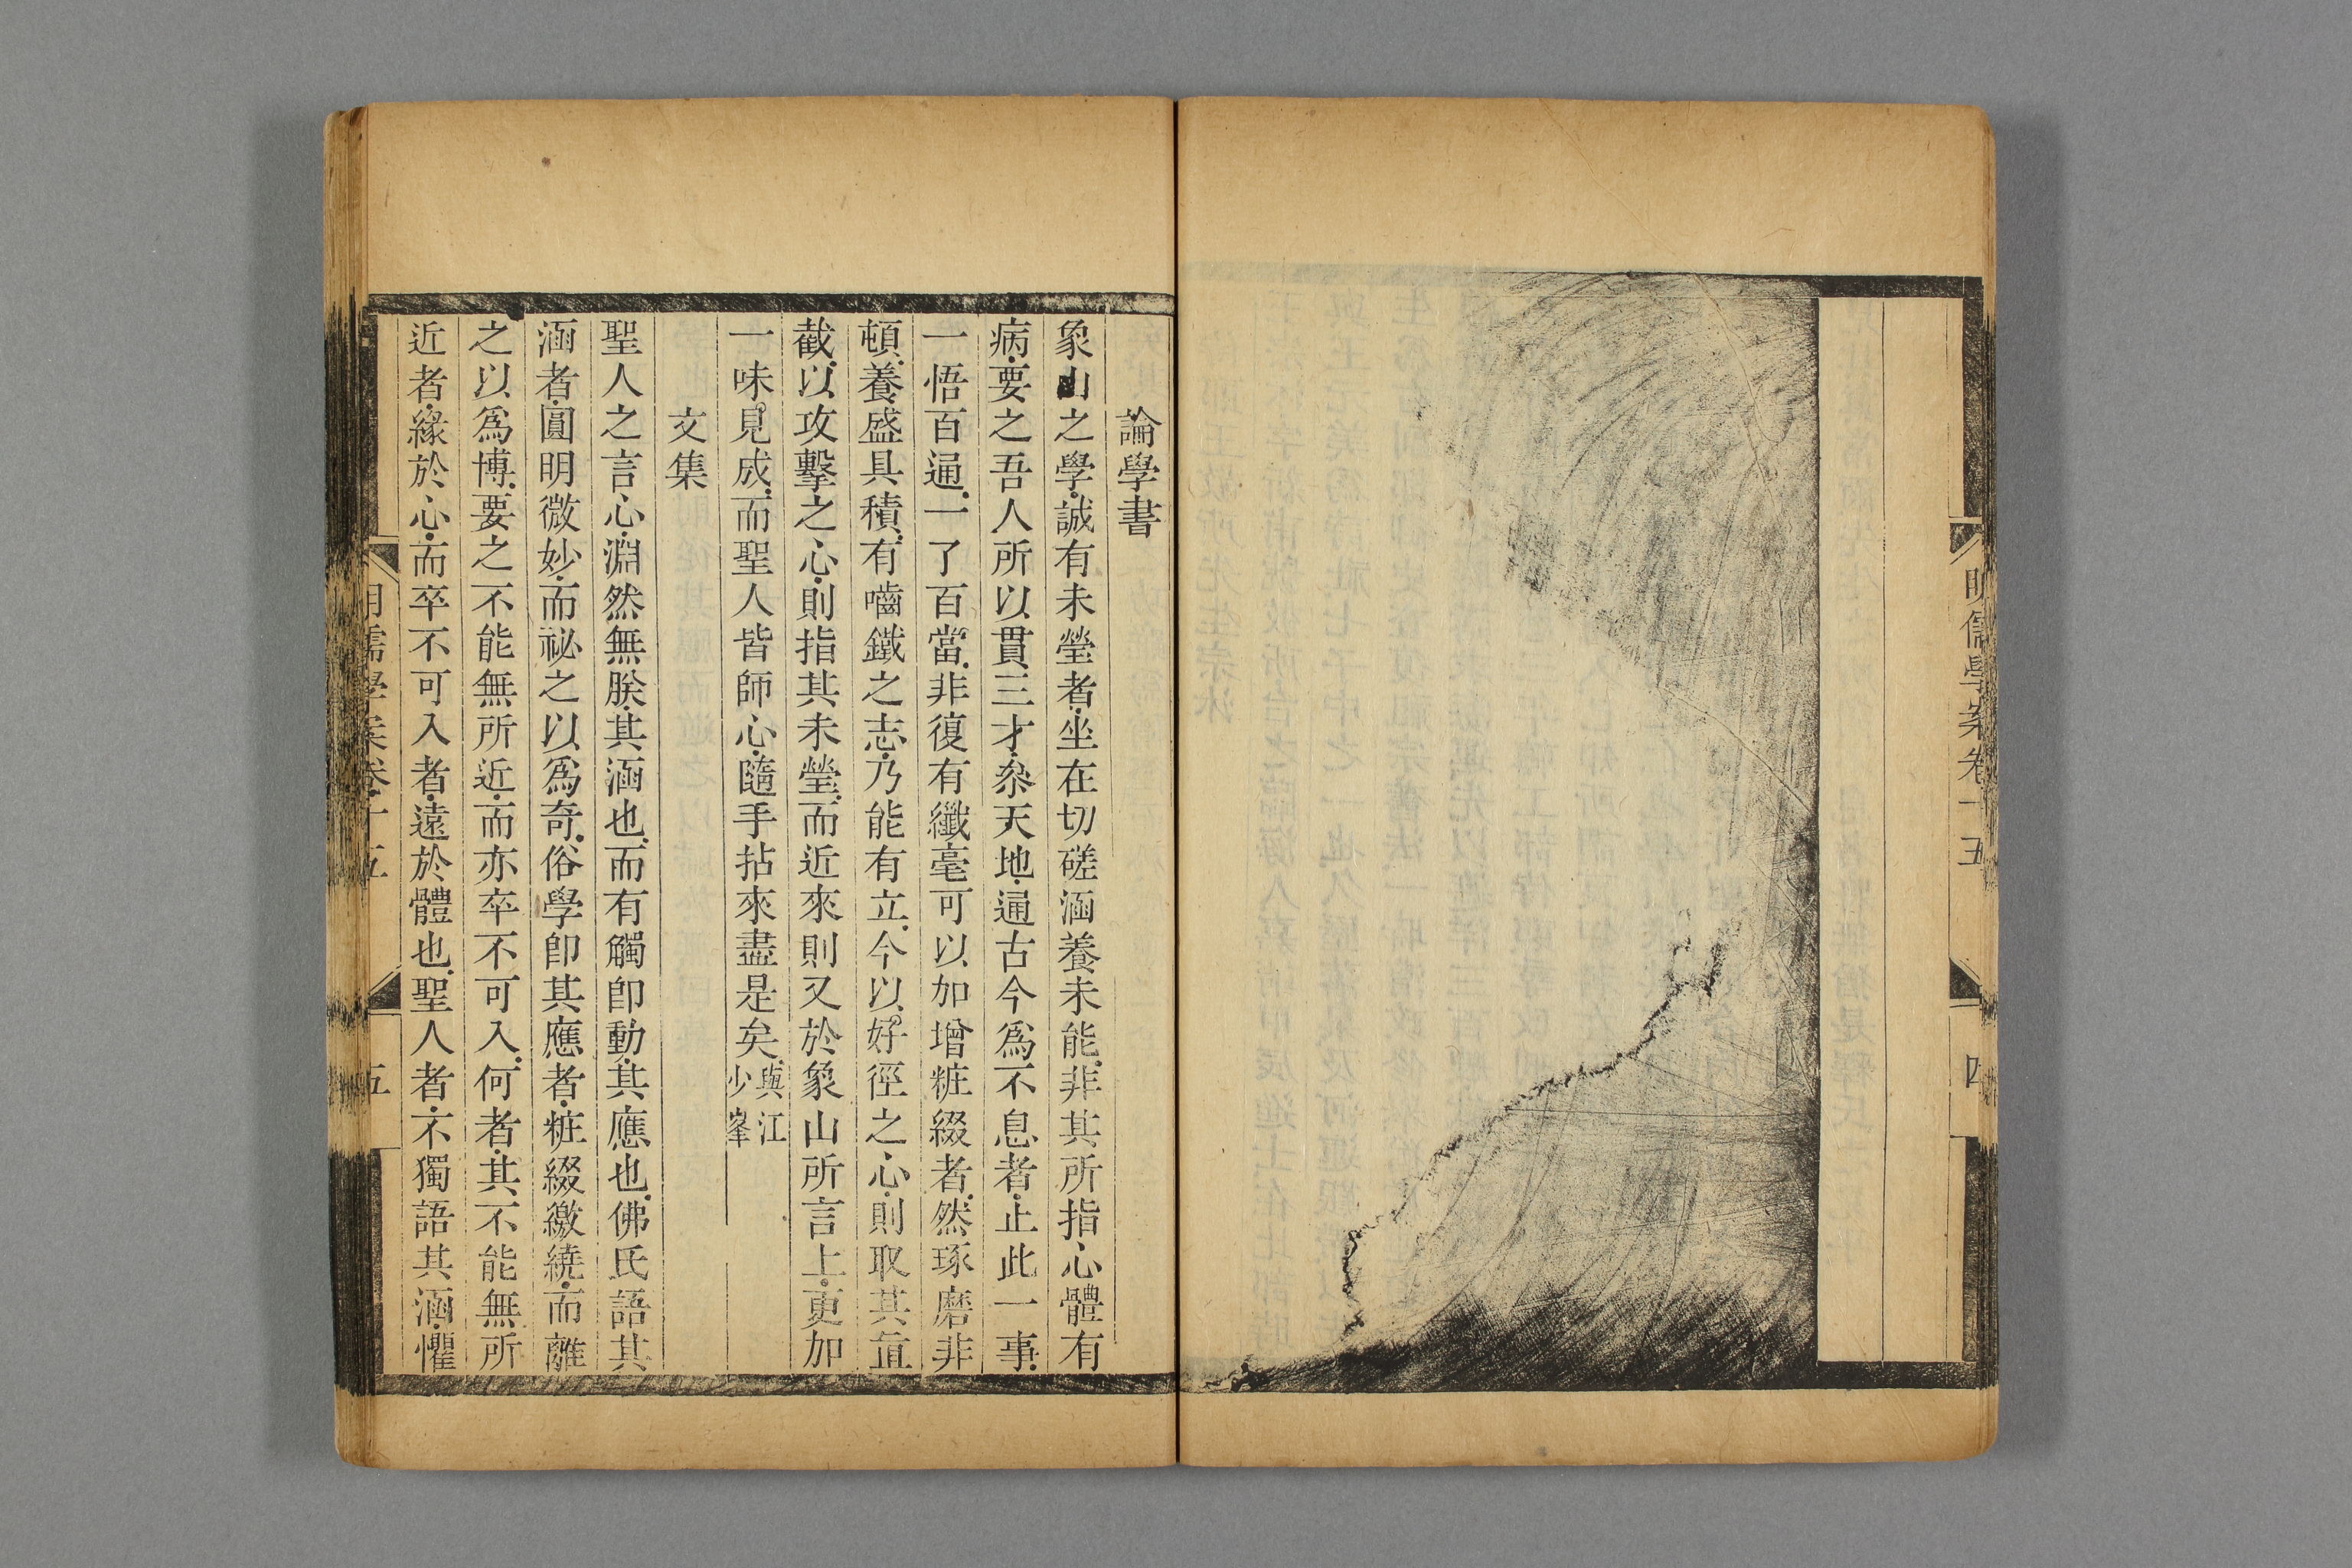 明儒學案卷十五
四
論學書
象山之學誠有未瑩者坐在切磋涵養未能非其所指心體有
病要之吾人所以貫三才叅天地通古今爲不息者止此一事
一悟百通一了百當非復有纖毫可以加增粧綴者然琢磨非
頓養盛具積有嚙鐵之志乃能有立今以好徑之心則取其直
截以攻擊之心則指其未瑩而近來則又於象山所言上更加
一味見成而聖人皆師心隨手拈來盡是矣與江
少峯
文集
聖人之言心淵然無朕其涵也而有觸卽動其應也佛氏語其
涵者圓明微妙而祕之以爲奇俗學卽其應者粧綴繳繞而離
之以爲博要之不能無所近而亦卒不可入何者其不能無所
近者緣於心而卒不可入者遠於體也聖人者不獨語其涵懼
明儒學案卷十五
五